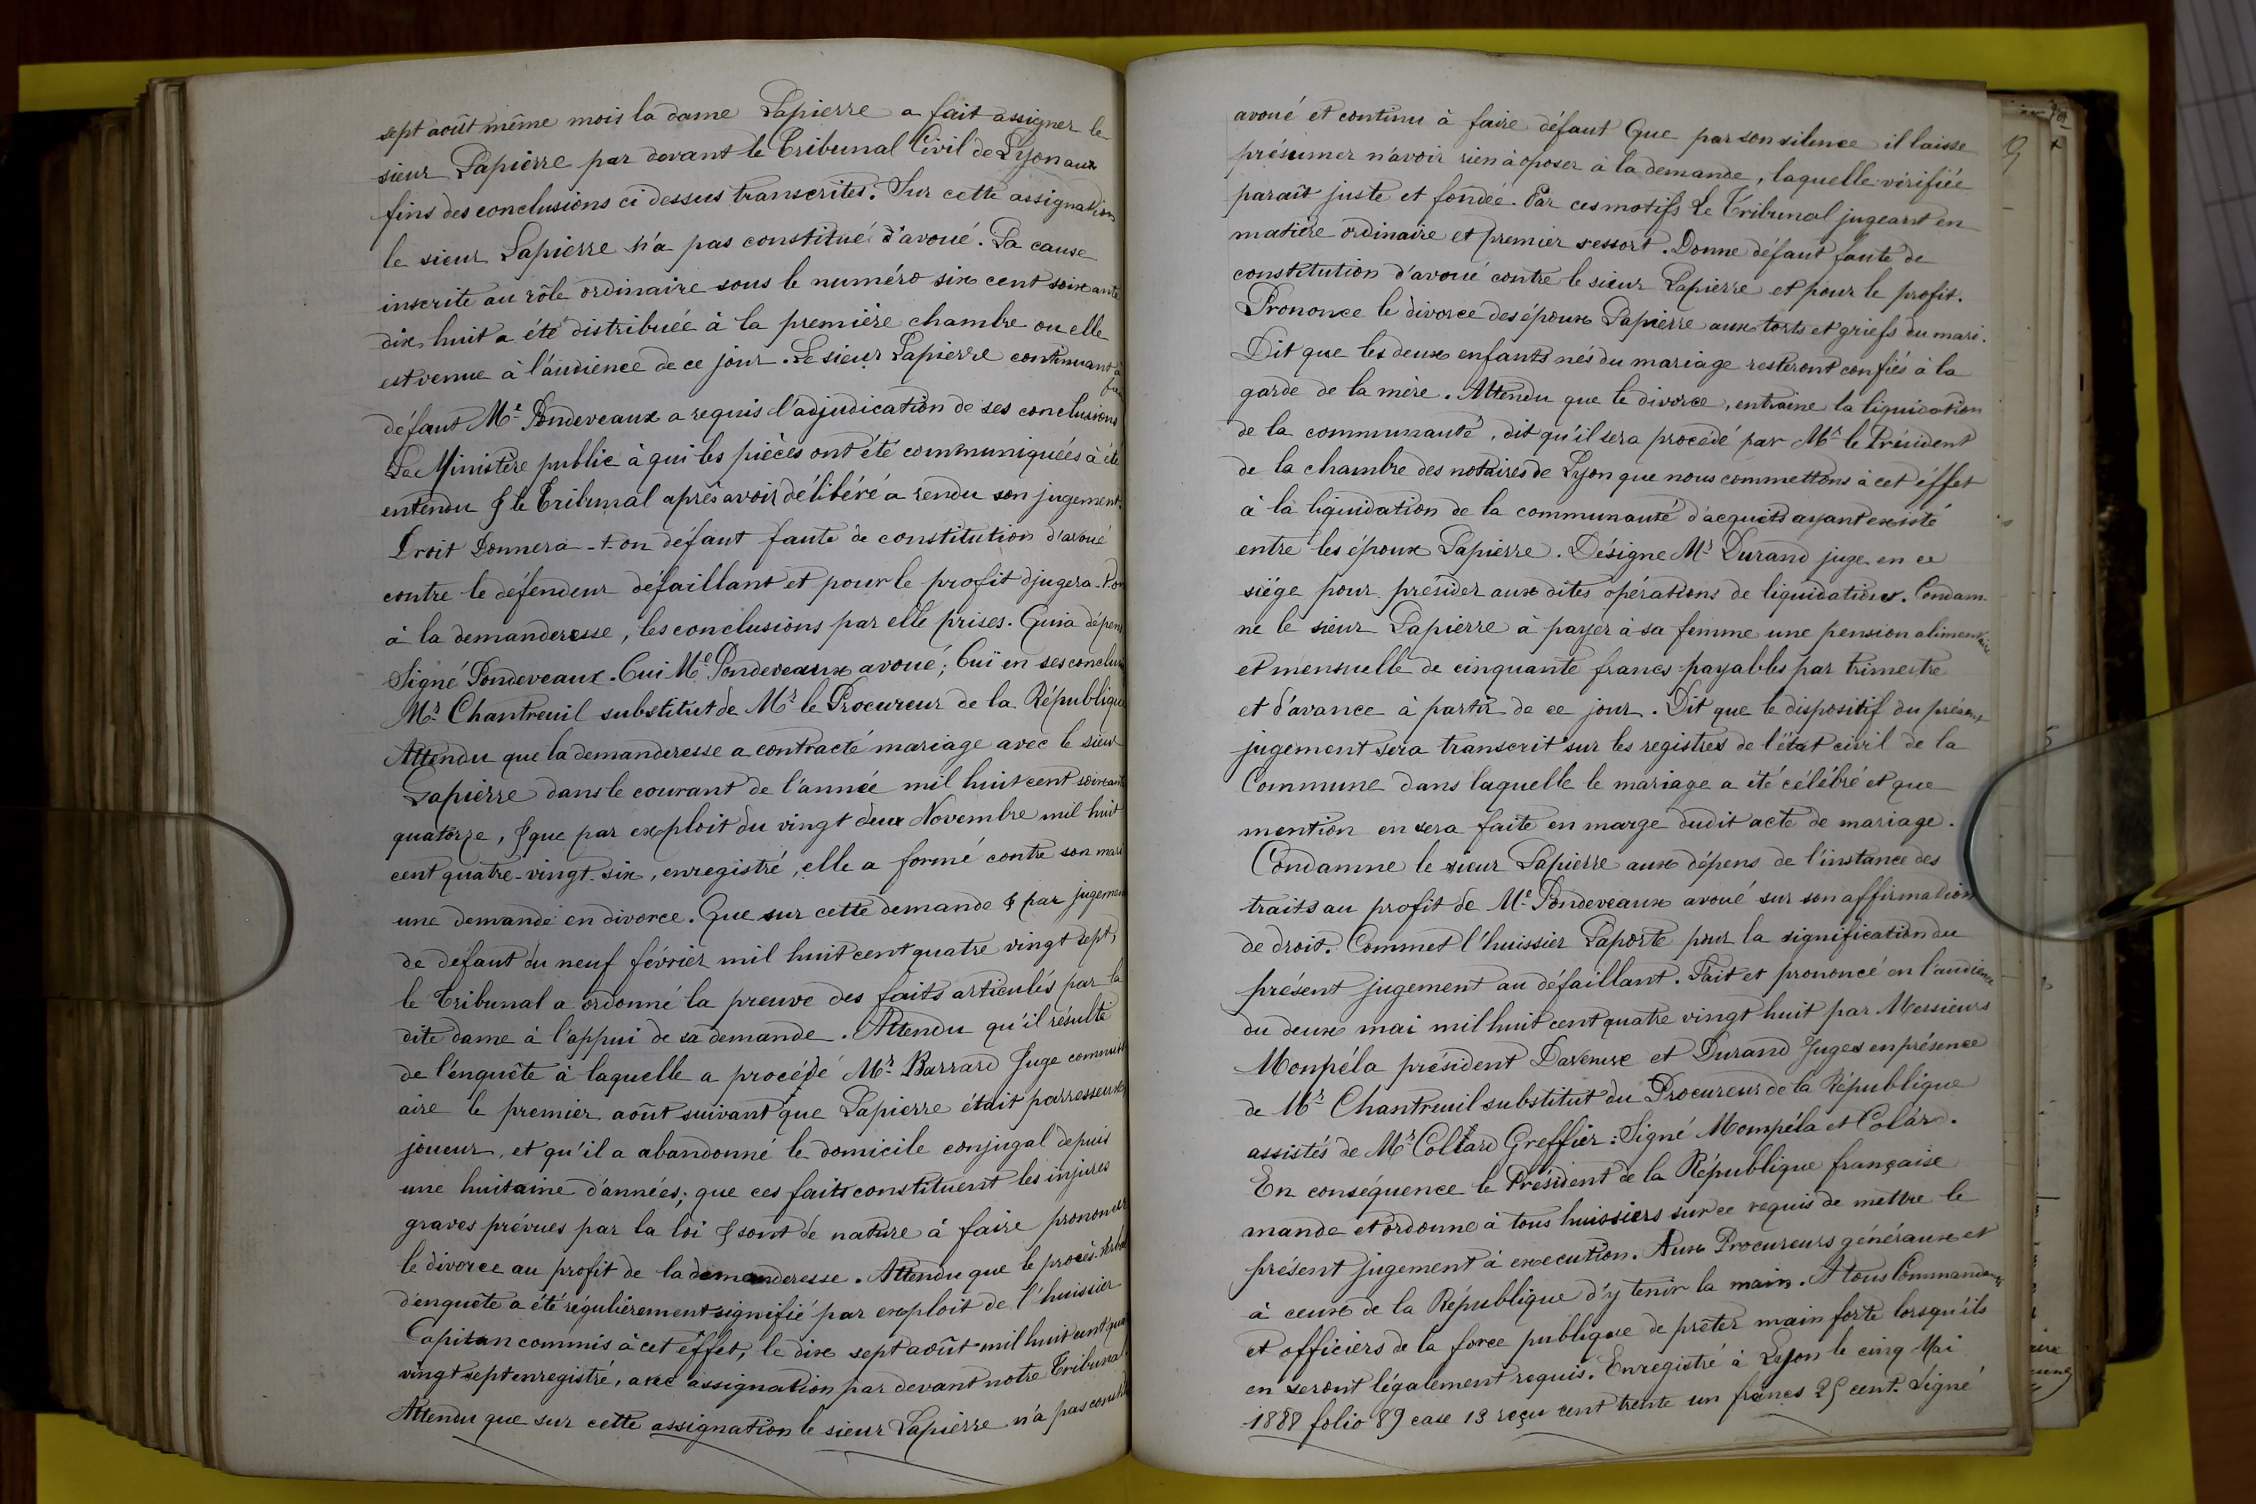 sept août même mois la dame Lapierre a fait assigner le
sieur Lapierre par devant le Tribunal Civil de Lyon aux
fins des conclusions ci dessus transcrites. Sur cette assignation
le sieur Lapierre n'a pas constitué d'avoué. La cause
inscrite au rôle ordinaire sous le numéro six cent soixante
dix huit a été distribuée à la première chambre ou elle
est venue à l'audience de ce jour. Le sieur Lapierre continuant à
défaut Me Pondeveaux a requis l'adjudication de ses conclusions
Le Ministère public à qui les pièces ont été communiquées à été
entendu & le Tribunal après avoir délibéré a rendu son jugement.
Droit Donnera-t-on défaut faute de constitution d'avoué
contre le défendeur défaillant et pour le profit djugera-t-on
à la demanderesse, les conclusions par elle prises. Quid dépens
Signé Pondeveaux. Oui Me Pondeveaux avoué; Ouï en ses conclu
Mr Chantreuil substitut de Mr le Procureur de la République
Attendu que la demanderesse a contracté mariage avec le sieur
Lapierre dans le courant de l'année mil huit cent soixante
quatorze, & que par exploit du vingt deux Novembre mil huit
cent quatre-vingt-six, enregistré, elle a formé contre son mari
une demande en divorce. Que sur cette demande & par jugement
de défaut du neuf février mil huit cent quatre vingt sept,
le Tribunal a ordonné la preuve des faits articulés par la
dite dame à l'appui de sa demande. Attendu qu'il résulte
de l'enquête à laquelle a procédé Mr Barrard Juge commiss
aire le premier août suivant que Lapierre était parresseux,
joueur, et qu'il a abandonné le domicile conjugal depuis
une huitaine d'années; que ces faits constituent les injures
graves prévues par la loi & sont de nature à faire prononcer
le divorce au profit de la demanderesse. Attendu que le procès-verbal
d'enquête a été régulièrement signifié par exploit de l'huissier
Capitan commis à cet éffet, le dix sept août mil huit cent qua
vingt sept enregistré, avec assignation par devant notre Tribunal
Attendu que sur cette assignation le sieur Lapierre n'a pas constit
avoué et continu à faire défaut Que par son silence il laisse
présumer n'avoir rien à oposer à la demande, laquelle vérifiée
parait juste et fondée. Par ces motifs Le Tribunal jugeant en
matière ordinaire et premier ressort. Donne défaut faute de
constitution d'avoué contre le sieur Lapierre et pour le profit.
Prononce le divorce des époux Lapierre aux torts et griefs du mari.
Dit que les deux enfants nés du mariage resteront confiés à la
garde de la mère. Attendu que le divorce, entraine la liquidation
de la communauté, dit qu'il sera procédé par Mr le Président
de la chambre des notaires de Lyon que nous commettons à cet éffet
à la liquidation de la communauté d'acquets ayant existé
entre les époux Lapierre. Désigne Mr Durand juge en ce
siége pour présider aux dites opérations de liquidation. Condam
ne le sieur Lapierre à payer à sa femme une pension alimentaire
et mensuelle de cinquante francs payables par trimestre
et d'avance à partir de ce jour. Dit que le dispositif du présent
jugement sera transcrit sur les registres de l'état civil de la
Commune dans laquelle le mariage a été célébré et que
mention en sera faite en marge dudit acte de mariage.
Condamne le sieur Lapierre aux dépens de l'instance des
traits au profit de Me Pondeveaux avoué sur son affirmation
de droit. Commet l'huissier Laporte pour la signification du
présent jugement au défaillant. Fait et prononcé en l'audience
du deux mai mil huit cent quatre vingt huit par Messieurs
Monpéla président Davenne et Durand Juges en présence
de Mr Chantreuil substitut du Procureur de la République
assistés de Mr Collard Greffier: Signé Mompéla et Colard.
En conséquence le Président de la République française
mande et ordonne à tous huissiers sur ce requis de mettre le
présent jugement à execution. Aux Procureurs généraux et
à ceux de la République d'y tenir la main. A tous Commandants
et officiers de la force publique de prêter main forte lorsqu'ils
en seront légalement requis. Enregistré à Lyon le cinq Mai
1888 folio 89 case 13 reçu cent trente un francs 25 cent. Signé